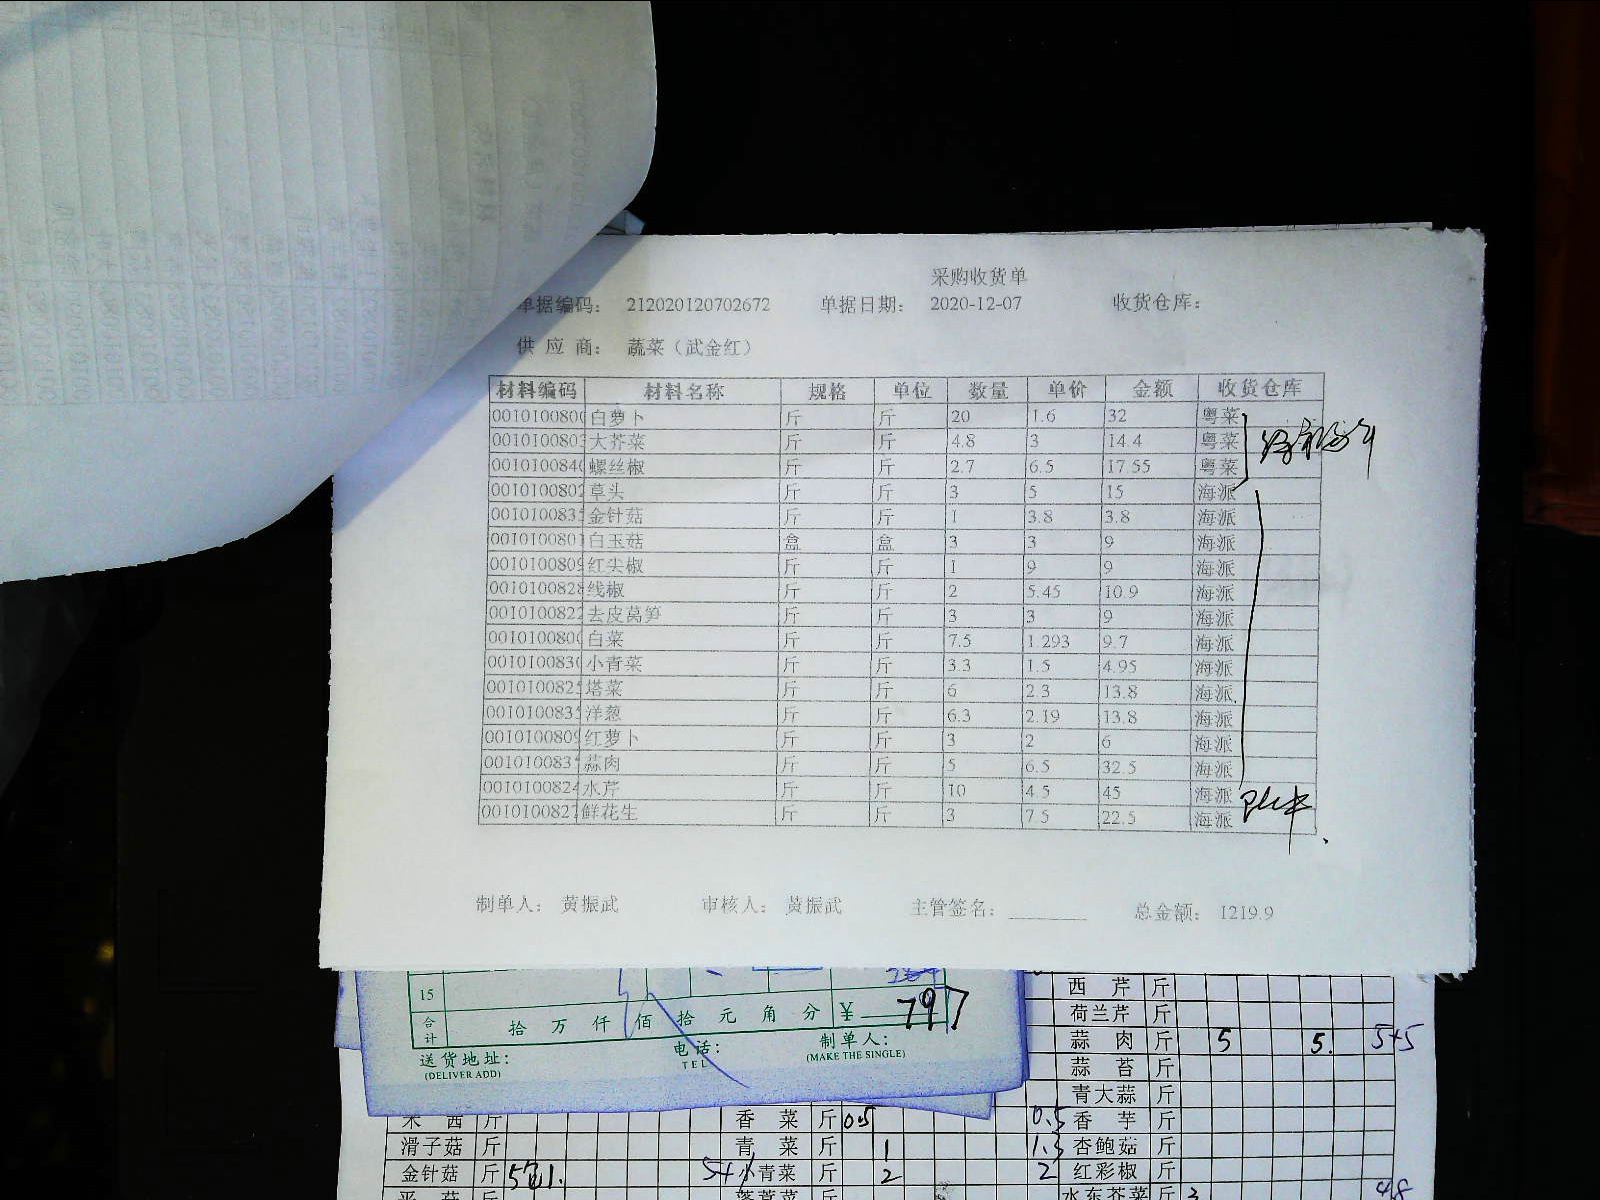 采购收货单
单据编码： 212020120702672 单据日期： 2020-12-07 收货仓库：
供 应 商： 蔬菜（武金红）
材料编码 材料名称 规格 单位 数量 单价 金额 收货仓库
001010080 白萝卜 斤 斤 20 1.6 32 粤菜
001010080 大芥菜 斤 斤 4.8 3 14.4 粤菜
001010084 螺丝椒 斤 斤 2.7 6.5 17.55 粤菜
001010080 草头 斤 斤 3 5 15 海派
001010083 金针菇 斤 斤 1 3.8 3.8 海派
001010080 白玉菇 盒 盒 3 3 9 海派
001010080 红尖椒 斤 斤 1 9 9 海派
001010082 线椒 斤 斤 2 5.45 10.9 海派
001010082 去皮莴笋 斤 斤 3 3 9 海派
001010080 白菜 斤 斤 7.5 1.293 9.7 海派
001010083 小青菜 斤 斤 3.3 1.5 4.95 海派
001010082 塔菜 斤 斤 6 2.3 13.8 海派
001010083 洋葱 斤 斤 6.3 2.19 13.8 海派
001010080 红萝卜 斤 斤 3 2 6 海派
001010083 蒜肉 斤 斤 5 6.5 32.5 海派
001010082 水芹 斤 斤 10 4.5 45 海派
001010082 鲜花生 斤 斤 3 7.5 22.5 海派
制单人： 黄振武 审核人： 黄振武 主管签名： 总金额： 1219.9
15
合计 拾 万 仟 佰 拾 元 角 分 ¥ 797
送货地址： 电话： 制单人：
(DELIVER ADD) TEL (MAKE THE SINGLE)
西 芹 斤
荷兰芹 斤
蒜 肉 斤 5 5. 5+5
蒜 苔 斤
青大蒜 斤
香 菜 斤 0.5 0.5 香 芋 斤
滑子菇 斤 青 菜 斤 1 1.3 杏鲍菇 斤
金针菇 斤 小青菜 斤 2 2 红彩椒 斤
水东芥菜 斤 3 4.8